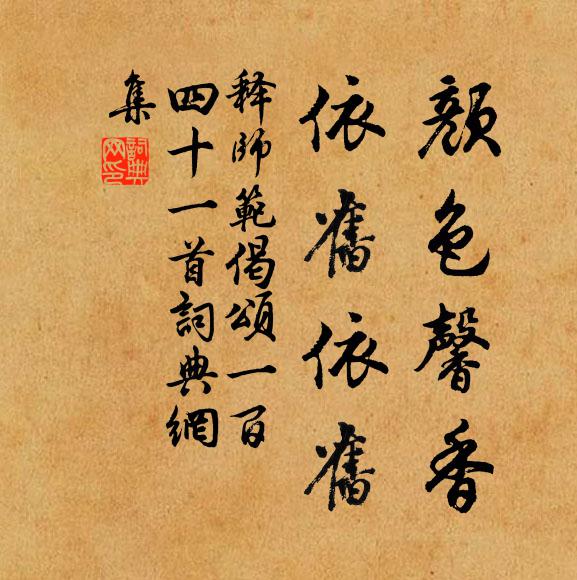 颜色馨香
依舊依舊
释師範偈頌一百
四十一首詞典網
集
詞典網印